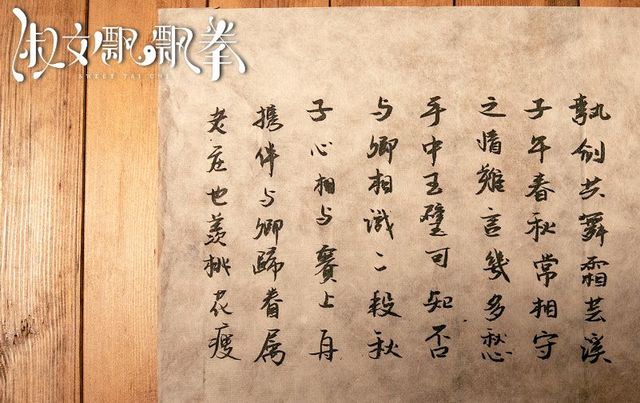 淑女飘飘拳
SWEET TAI CHI
執剑共舞霜芸溪
子午春秋常相守
之情難言幾多愁
手中玉璧可知否
与卿相識二秋
子心相与賽上舟
携伴与卿歸眷属
老庄也羨桃花瘦